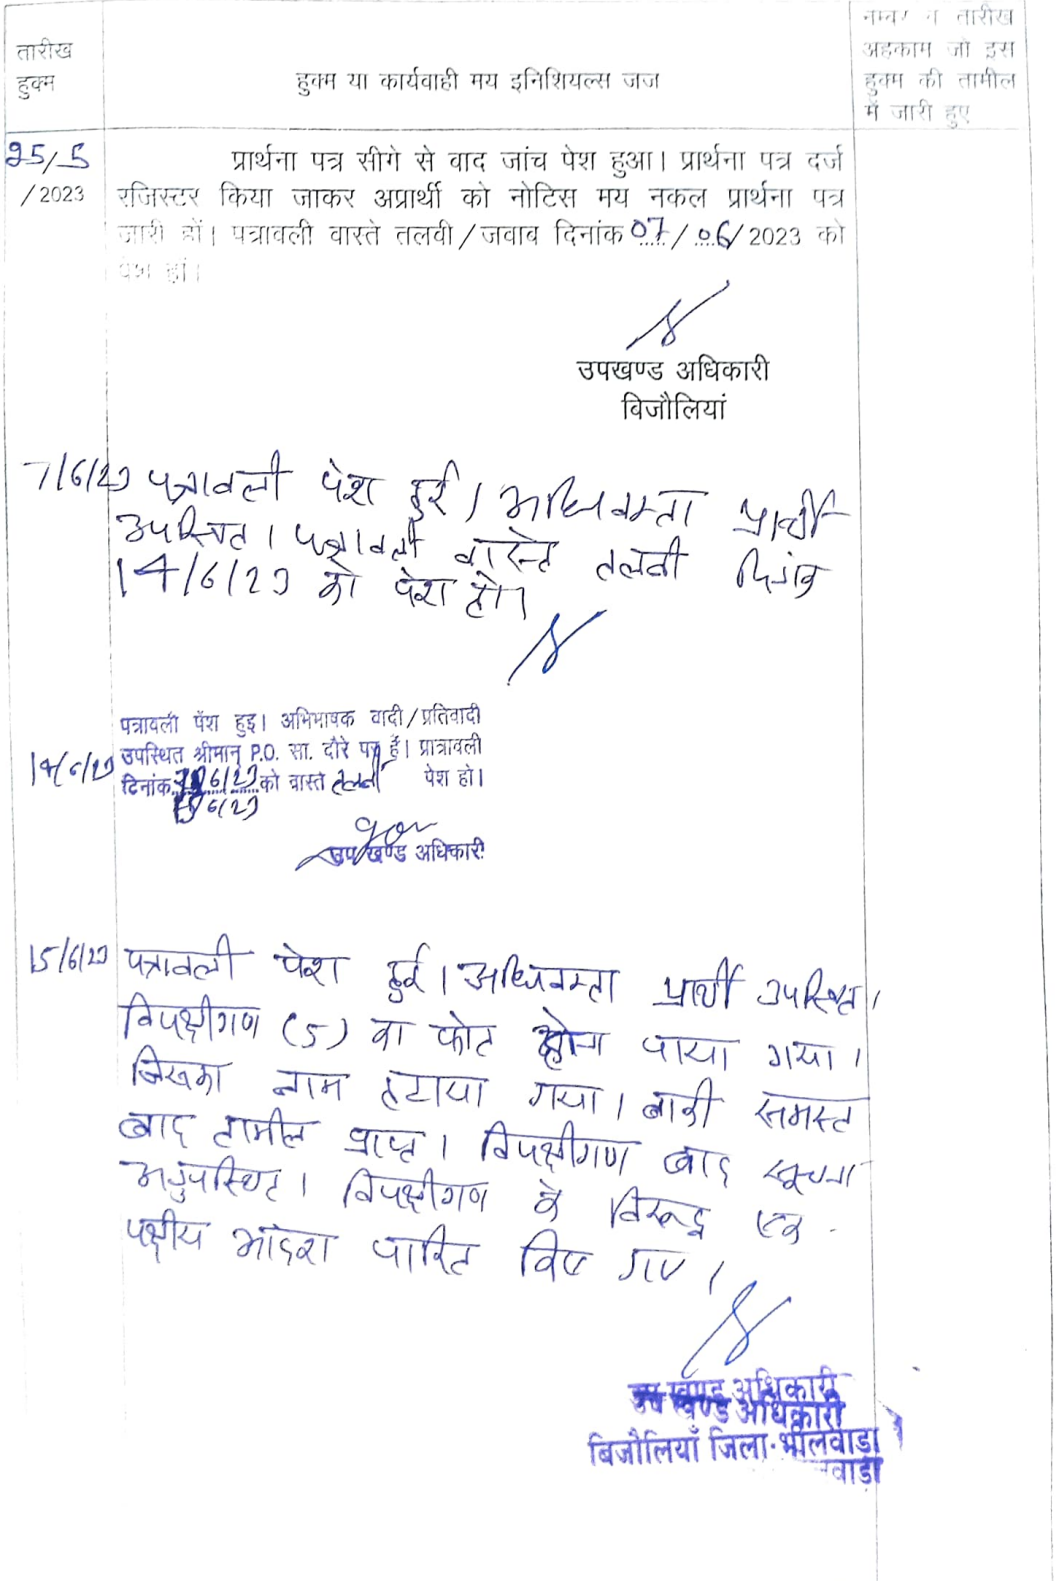 तारीख
हुक्म
हुक्म या कार्यवाही मय इनिशियल्स जज
नम्बर व तारीख
अहकाम जो इस
हुक्म की तामील
में जारी हुए
25/5
/2023
प्रार्थना पत्र सीगे से वाद जांच पेश हुआ। प्रार्थना पत्र दर्ज
रजिस्टर किया जाकर अप्रार्थी को नोटिस मय नकल प्रार्थना पत्र
जारी हों। पत्रावली वास्ते तलवी/जवाब दिनांक 07/06/2023 को
पेश हों।
उपखण्ड अधिकारी
विजौलियां
7/6/23 पत्रावली पेश हुई। अधिवक्ता प्रार्थी
उपस्थित। पत्रावली वास्ते तलबी दिनांक
14/6/23 को पेश हो।
पत्रावली पेंश हुइ। अभिभाषक वादी/प्रतिवादी
14/6/23 उपस्थित श्रीमान् P.O. सा. दौरे पर हैं। प्रात्रावली
दिनांक 6/23 को वास्ते तलबी पेश हो।
15/6/23
उप खण्ड अधिकारी
15/6/23 पत्रावली पेश हुई। अधिवक्ता प्रार्थी उपस्थित।
विपक्षीगण (5) का फोट होना पाया गया।
जिसका नाम हटाया गया। बाकी समस्त
बाद तामील प्राप्त। विपक्षीगण बाद सूचना
अनुपस्थित। विपक्षीगण के विरूद्ध एक
पक्षीय आदेश पारित किए गए।
उप खण्ड अधिकारी
उप खण्ड अधिकारी
बिजौलियाँ जिला-भीलवाडा
वाडा